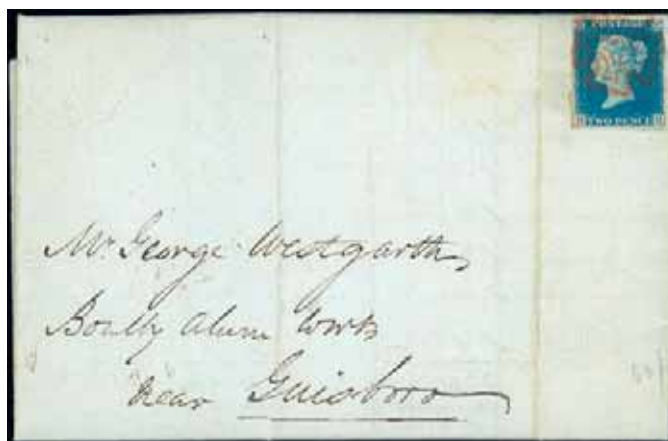 POSTAGE
TWO PENCE
Mr. George Westgarth
Boulby Alum Works
near Guisboro